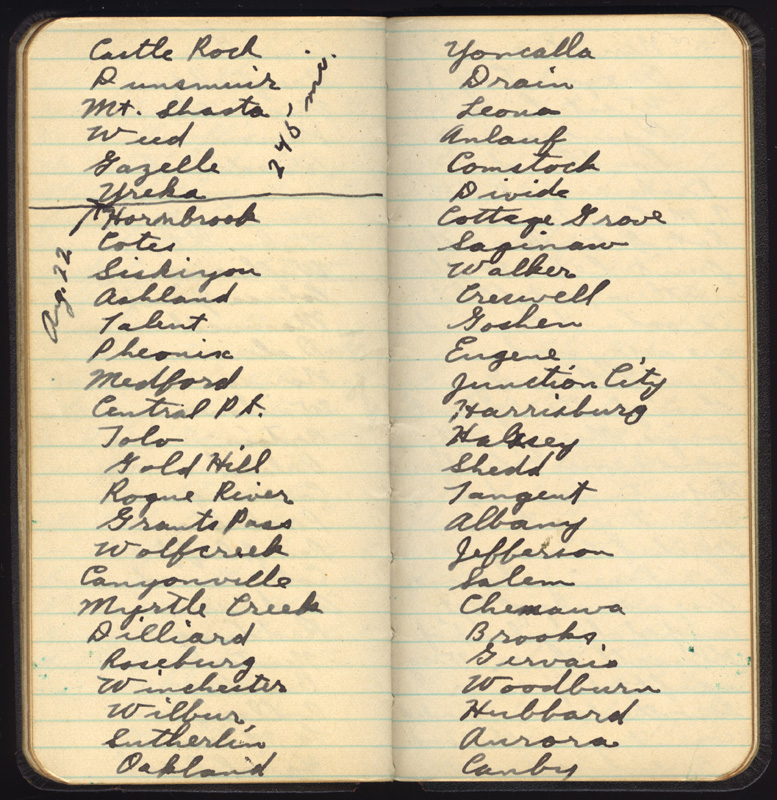 Castle Rock
Dunsmuir
Mt. Shasta
Weed
Gazelle
Yreka
245 mi.
Aug. 22
Hornbrook
Coles
Siskiyou
Ashland
Talent
Pheonix
Medford
Central Pt.
Tolo
Gold Hill
Rogue River
Grants Pass
Wolfcreek
Canyonville
Myrtle Creek
Dilliard
Roseburg
Winchester
Wilbur
Sutherlin
Oakland
Yoncalla
Drain
Leona
Anlauf
Comstock
Divide
Cottage Grove
Saginaw
Walker
Creswell
Goshen
Eugene
Junction City
Harrisburg
Halsey
Shedd
Tangent
Albany
Jefferson
Salem
Chemawa
Brooks
Gervais
Woodburn
Hubbard
Aurora
Canby